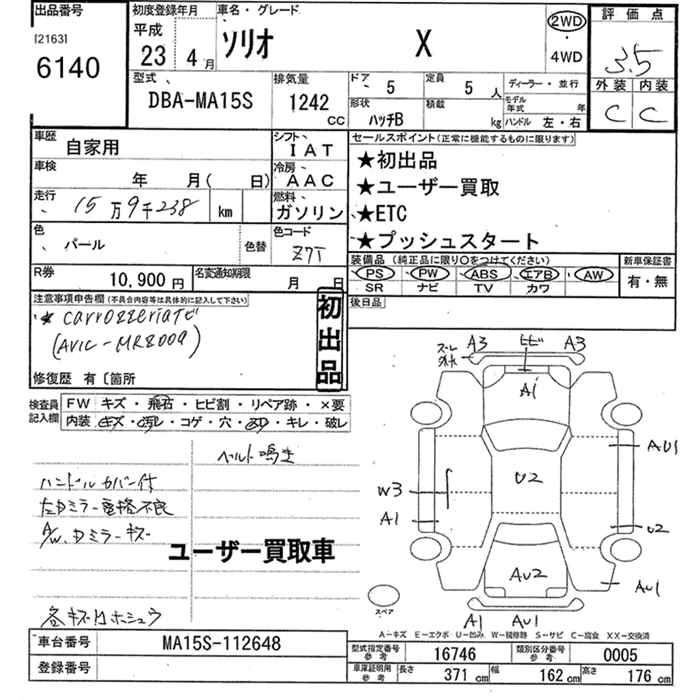 出品番号
[2163]
6140
初度登録年月
平成
23 4月
車名・グレード
ソリオ X
2WD
・
4WD
評価点
3.5
外装 内装
C C
型式
DBA-MA15S
排気量
1242
CC
ドア
5
定員
5人
形状
ハッチB
積載
kg
ディーラー・並行
モデル年式 年
ハンドル 左・右
車歴
自家用
シフト
IAT
車検
年 月( 日)
冷房
AAC
走行
15万9千238 km
燃料
ガソリン
色
パール
色替
色コード
Z7T
R券
10,900円
名変通知期限
月 日
セールスポイント(正常に機能するものに限ります)
★初出品
★ユーザー買取
★ETC
★プッシュスタート
装備品(純正品に限り○をつけてください)
PS PW ABS エアB AW
SR ナビ TV カワ
新車保証書
有・無
後日品
注意事項申告欄(不具合内容等は具体的に記入して下さい)
* carrozzeriaナビ
(AVIC-MRZ009)
初出品
修復歴 有〔箇所
検査員記入欄
FW キズ・飛石・ヒビ割・リペア跡・×要
内装 キズ・汚レ・コゲ・穴・凹・キレ・破レ
ベルト鳴き
ハンドルカバー付
左ドアミラー電格不良
A/W、ドアミラーキズ
ユーザー買取車
各キズ凹ホシュウ
A3
ヒビ
A3
A1
AU1
U2
W3
A1
U2
AU2
AU1
A1
AU1
スペア
A−キズ E−エクボ U−凹み W−補修跡 S−サビ C−腐食 XX−交換済
車台番号
MA15S-112648
登録番号
型式指定番号
参考
16746
類別区分番号
参考
0005
車庫証明用
参考
長さ
371 cm
幅
162 cm
高さ
176 cm